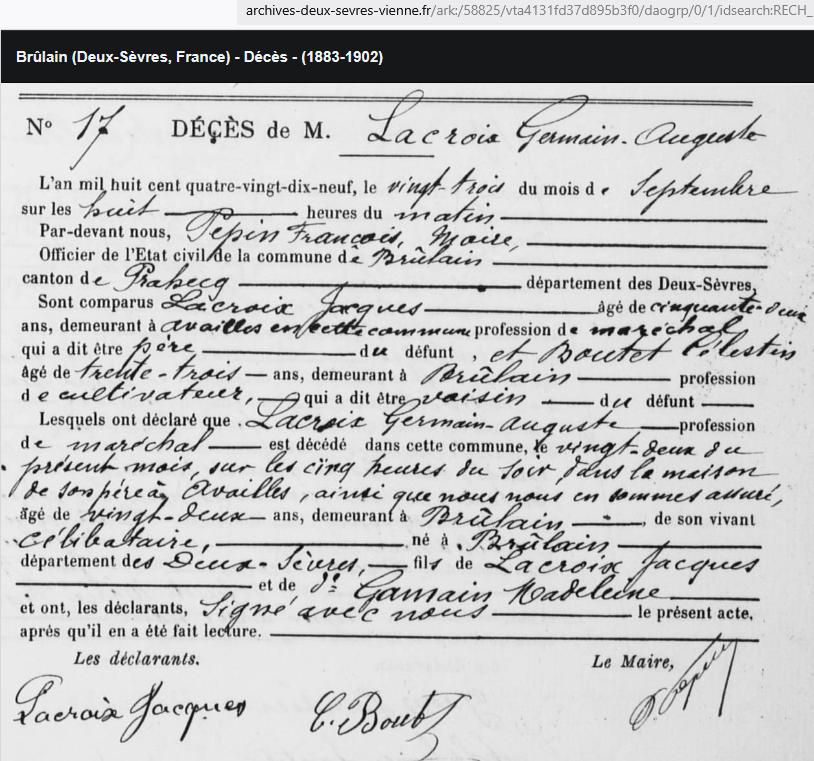 archives-deux-sevres-vienne.fr/ark:/58825/vta4131fd37d895b3f0/daogrp/0/1/idsearch:RECH_
Brûlain (Deux-Sèvres, France) - Décès - (1883-1902)
No 17 DÉCÈS de M. Lacroix Germain-Auguste
L'an mil huit cent quatre-vingt-dix-neuf, le vingt-trois du mois de Septembre
sur les huit heures du matin
Par-devant nous, Pepin François, Maire,
Officier de l'Etat civil de la commune de Brûlain
canton de Prahecq département des Deux-Sèvres,
Sont comparus Lacroix Jacques âgé de cinquante-deux
ans, demeurant à Availles en cette commune profession de maréchal
qui a dit être père du défunt, et Boutet Célestin
âgé de trente-trois ans, demeurant à Brûlain profession
de cultivateur, qui a dit être voisin du défunt
Lesquels ont déclaré que Lacroix Germain-Auguste profession
de maréchal est décédé dans cette commune, le vingt-deux du
présent mois, sur les cinq heures du soir, dans la maison
de son père à Availles, ainsi que nous nous en sommes assuré,
âgé de vingt-deux ans, demeurant à Brûlain, de son vivant
célibataire, né à Brûlain
département des Deux-Sèvres, fils de Lacroix Jacques
et de de Gamain Madeleine
et ont, les déclarants, Signé avec nous le présent acte,
après qu'il en a été fait lecture.
Les déclarants. Le Maire,
Lacroix Jacques C. Boutet